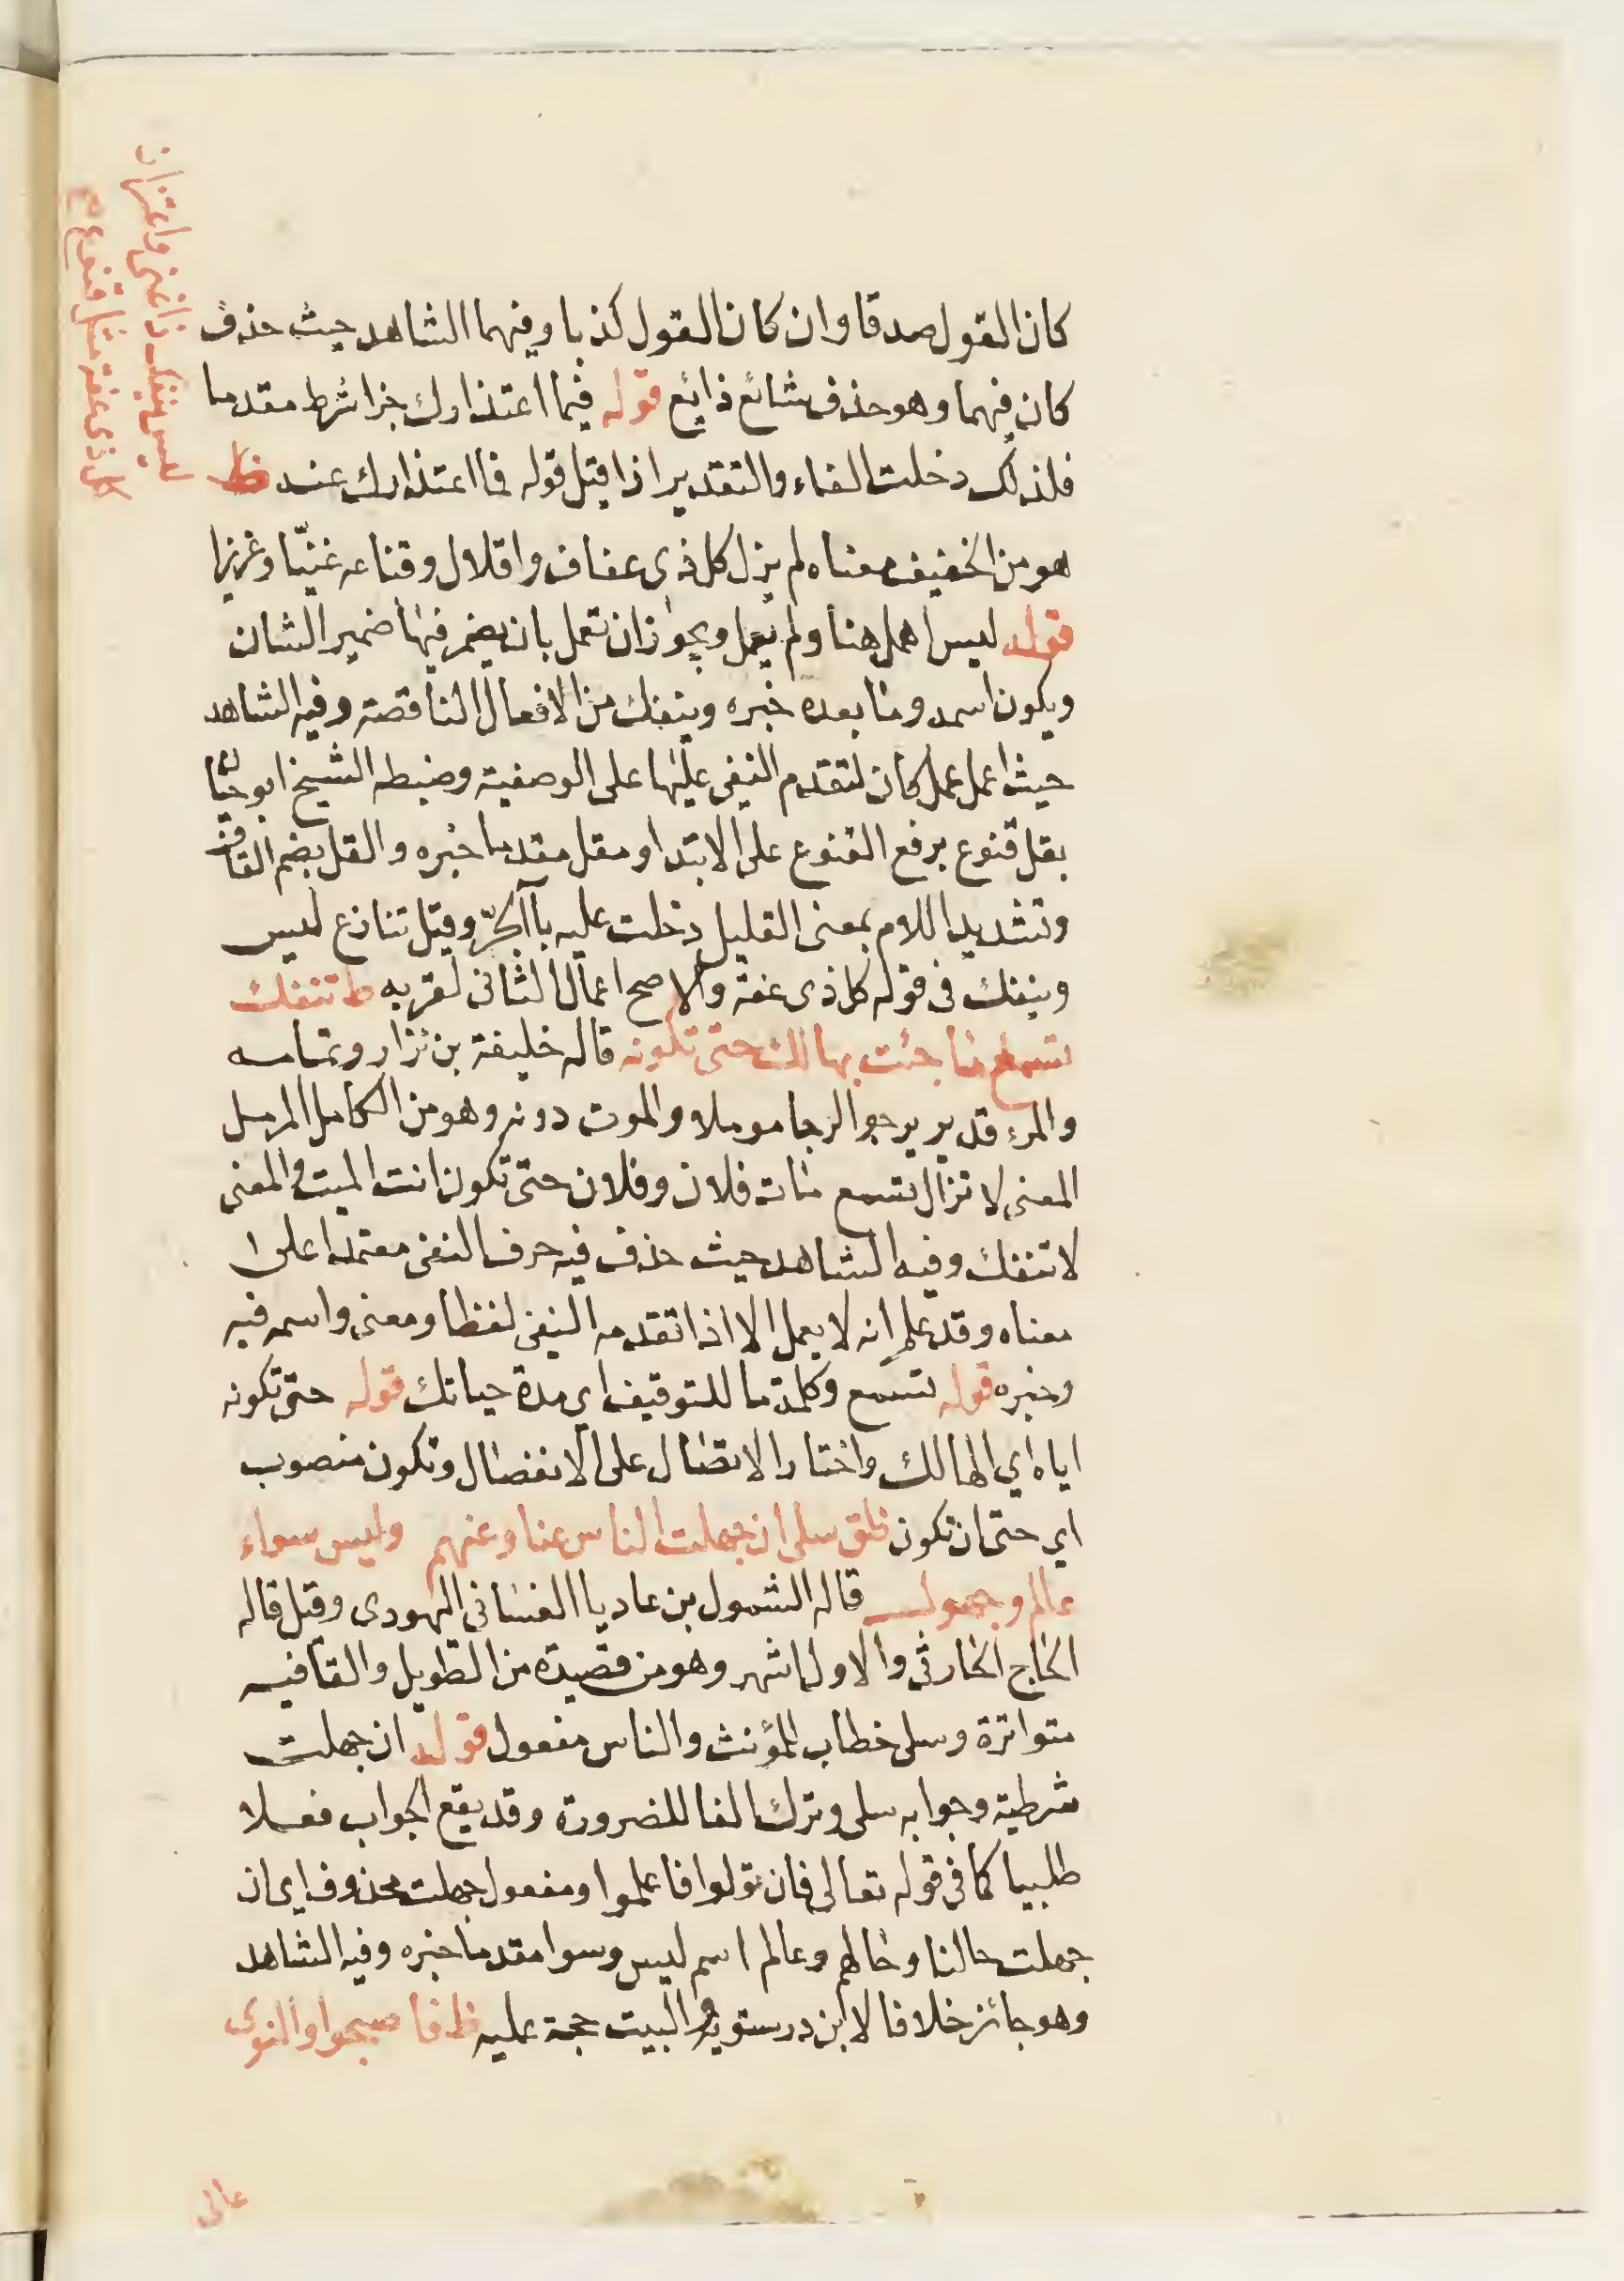 كان القول صدقا وان كان القول كذبا وفيهما الشاهد حيث حذف
كان فيهما وهو حذف شائع ذايع قوله فما اعتذارك جزا شرط مقدما
فلذلك دخلت الفاء والتقدير اذا قيل قوله فما اعتذارك عند ظ
هو من الخفيف معناه لم يزل كل ذى عفاف واقلال وقناعه غنيّا وعزيزا
قوله ليس اهمل هنا ولم يعمل ويجوز ان تعمل بان يضمر فيها ضمير الشان
ويكون اسمه وما بعده خبره وينفك من الافعال الناقصة وفيه الشاهد
حيث اعمل عمل كان لتقدم النفى عليها على الوصفية وضبطه الشيخ ابو حيّان
بقل قنوع برفع القنوع على الابتدا ومقل مقدما خبره والقل بضم القاف
وتشديد اللام بمعنى القليل دخلت عليه باآلجرّ وقيل تنازع ليس
وينفك فى قوله كل ذى عفة والاصح اعمال الثانى لقربه ط تنفك
تسمع ما جئت بهالك حتى تكونه قاله خليفة بن نزار وتمامه
والمرء قد ير يرجو الرجا موملا والموت دونه وهو من الكامل المرسل
المعنى لا تزال تسمع مات فلان وفلان حتى تكون انت الميت والمعنى
لا تنفك وفيه الشاهد حيث حذف فيه حرف النفى معتمدا على ا
معناه وقد علم انه لا يعمل الا اذا تقدمه النفى لفظا ومعنى واسمه فيه
وخبره قوله تسمع وكلمة ما للتوقيف اى مدة حياتك قوله حتى تكونه
اياه اي الهالك واختار الاتصال على الانفصال وتكون منصوب
اي حتى ان تكون ظق سلى ان جهلت الناس عنا وعنهم وليس سواء
عالم وجهول قاله الشمول بن عاديا الغسانى اليهودى وقيل قاله
الحاج الحارثى والاول اشهر وهو من قصيدة من الطويل والقافيه
متواترة وسلى خطاب المؤنث والناس مفعول قوله ان جهلت
شرطية وجوابه سلى وترك الفا للضرورة وقد يقع الجواب فعلا
طلبيا كما فى قوله تعالى فان تولوا فاعلموا ومفعول جهلت محذوف اى ان
جهلت حالنا وحالهم وعالم اسم ليس وسوا مقدما خبره وفيه الشاهد
وهو جائز خلافا لابن درستويه والبيت حجة عليه ظ فا صبحوا والنوى
عالى
ليس ينفك ذا غنى واعتزان
كل ذى عفة مقل قنوع